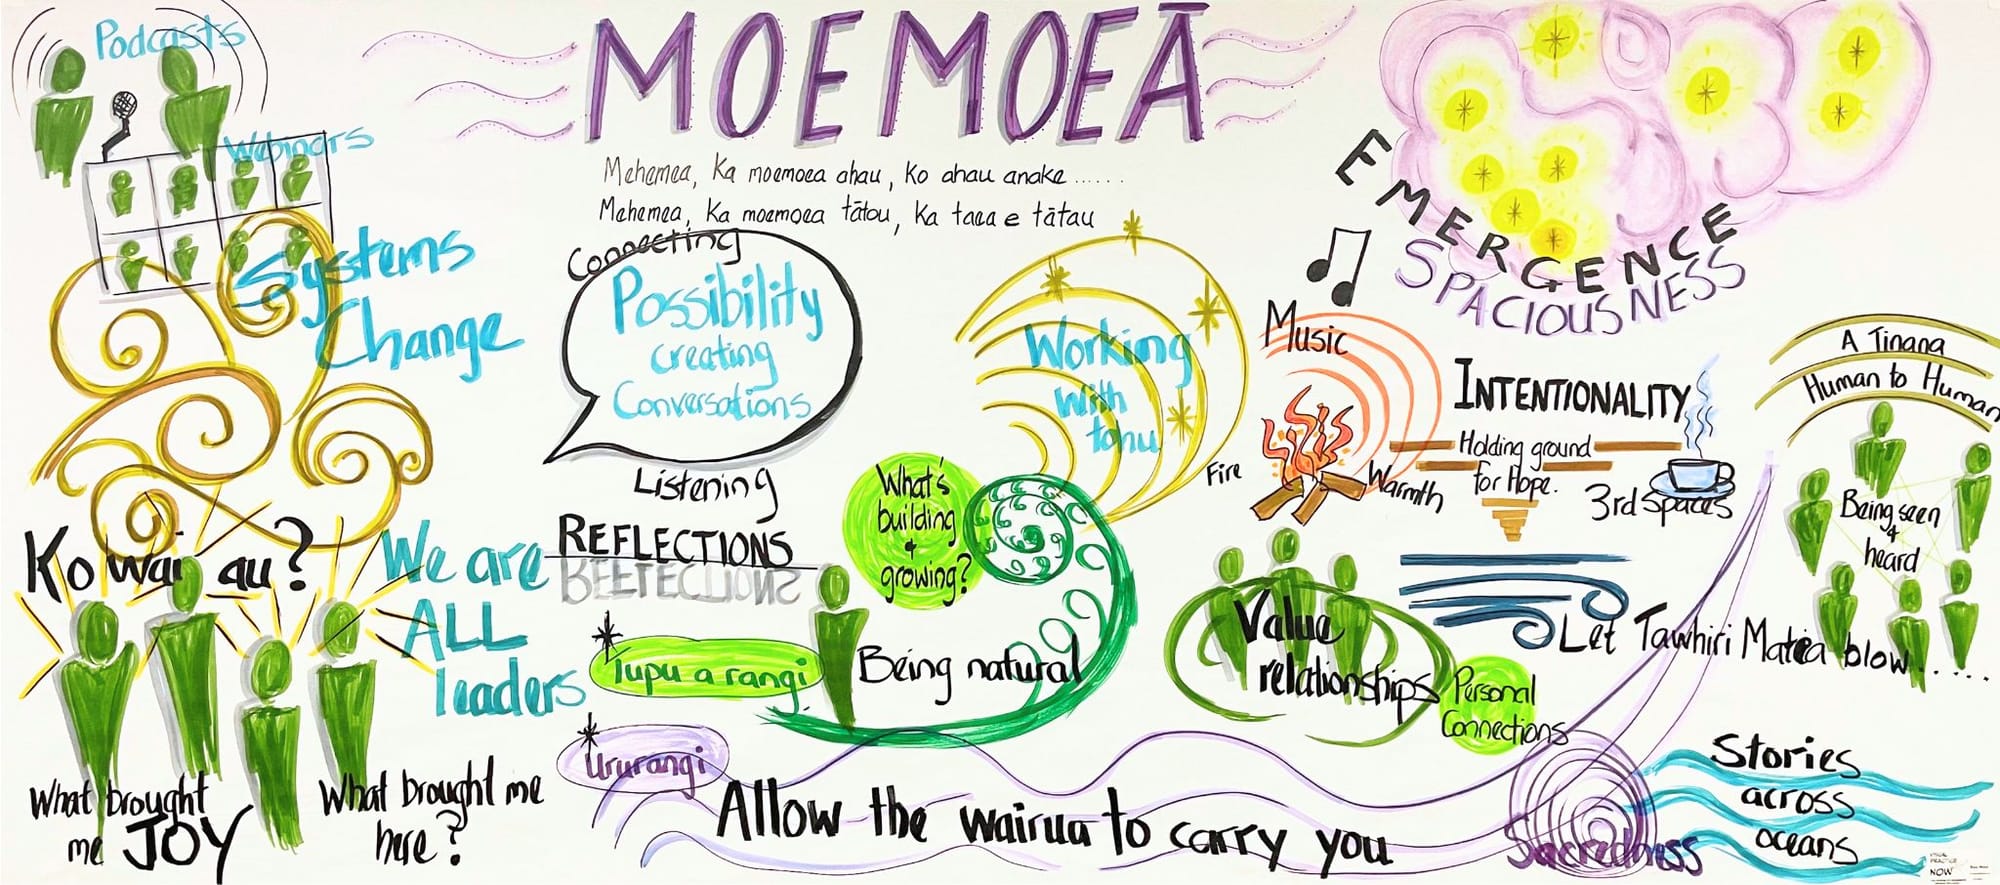 Podcasts
Webinars
MOEMOEĀ
Mehemea, Ka moemoea ahau, Ko ahau anake......
Mehemea, Ka moemoea tātou, Ka taea e tātau
Systems
Change
Connecting
Possibility
creating
Conversations
Listening
Working
With
tohu
EMERGENCE
SPACIOUSNESS
Music
Fire
Warmth
INTENTIONALITY
Holding ground
for Hope.
3rd Spaces
A Tinana
Human to Human
Being seen
+
heard
Ko wai au?
We are
ALL
leaders
REFLECTIONS
REFLECTIONS
What's
building
+
growing?
Tupu a rangi
Being natural
Value
relationships
Personal
Connections
Let Tawhiri Matea blow.....
What brought
me JOY
What brought me
here?
Ururangi
Allow the wairua to carry you
Sacredness
Stories
across
oceans
VISUAL
PRACTICE
NOW